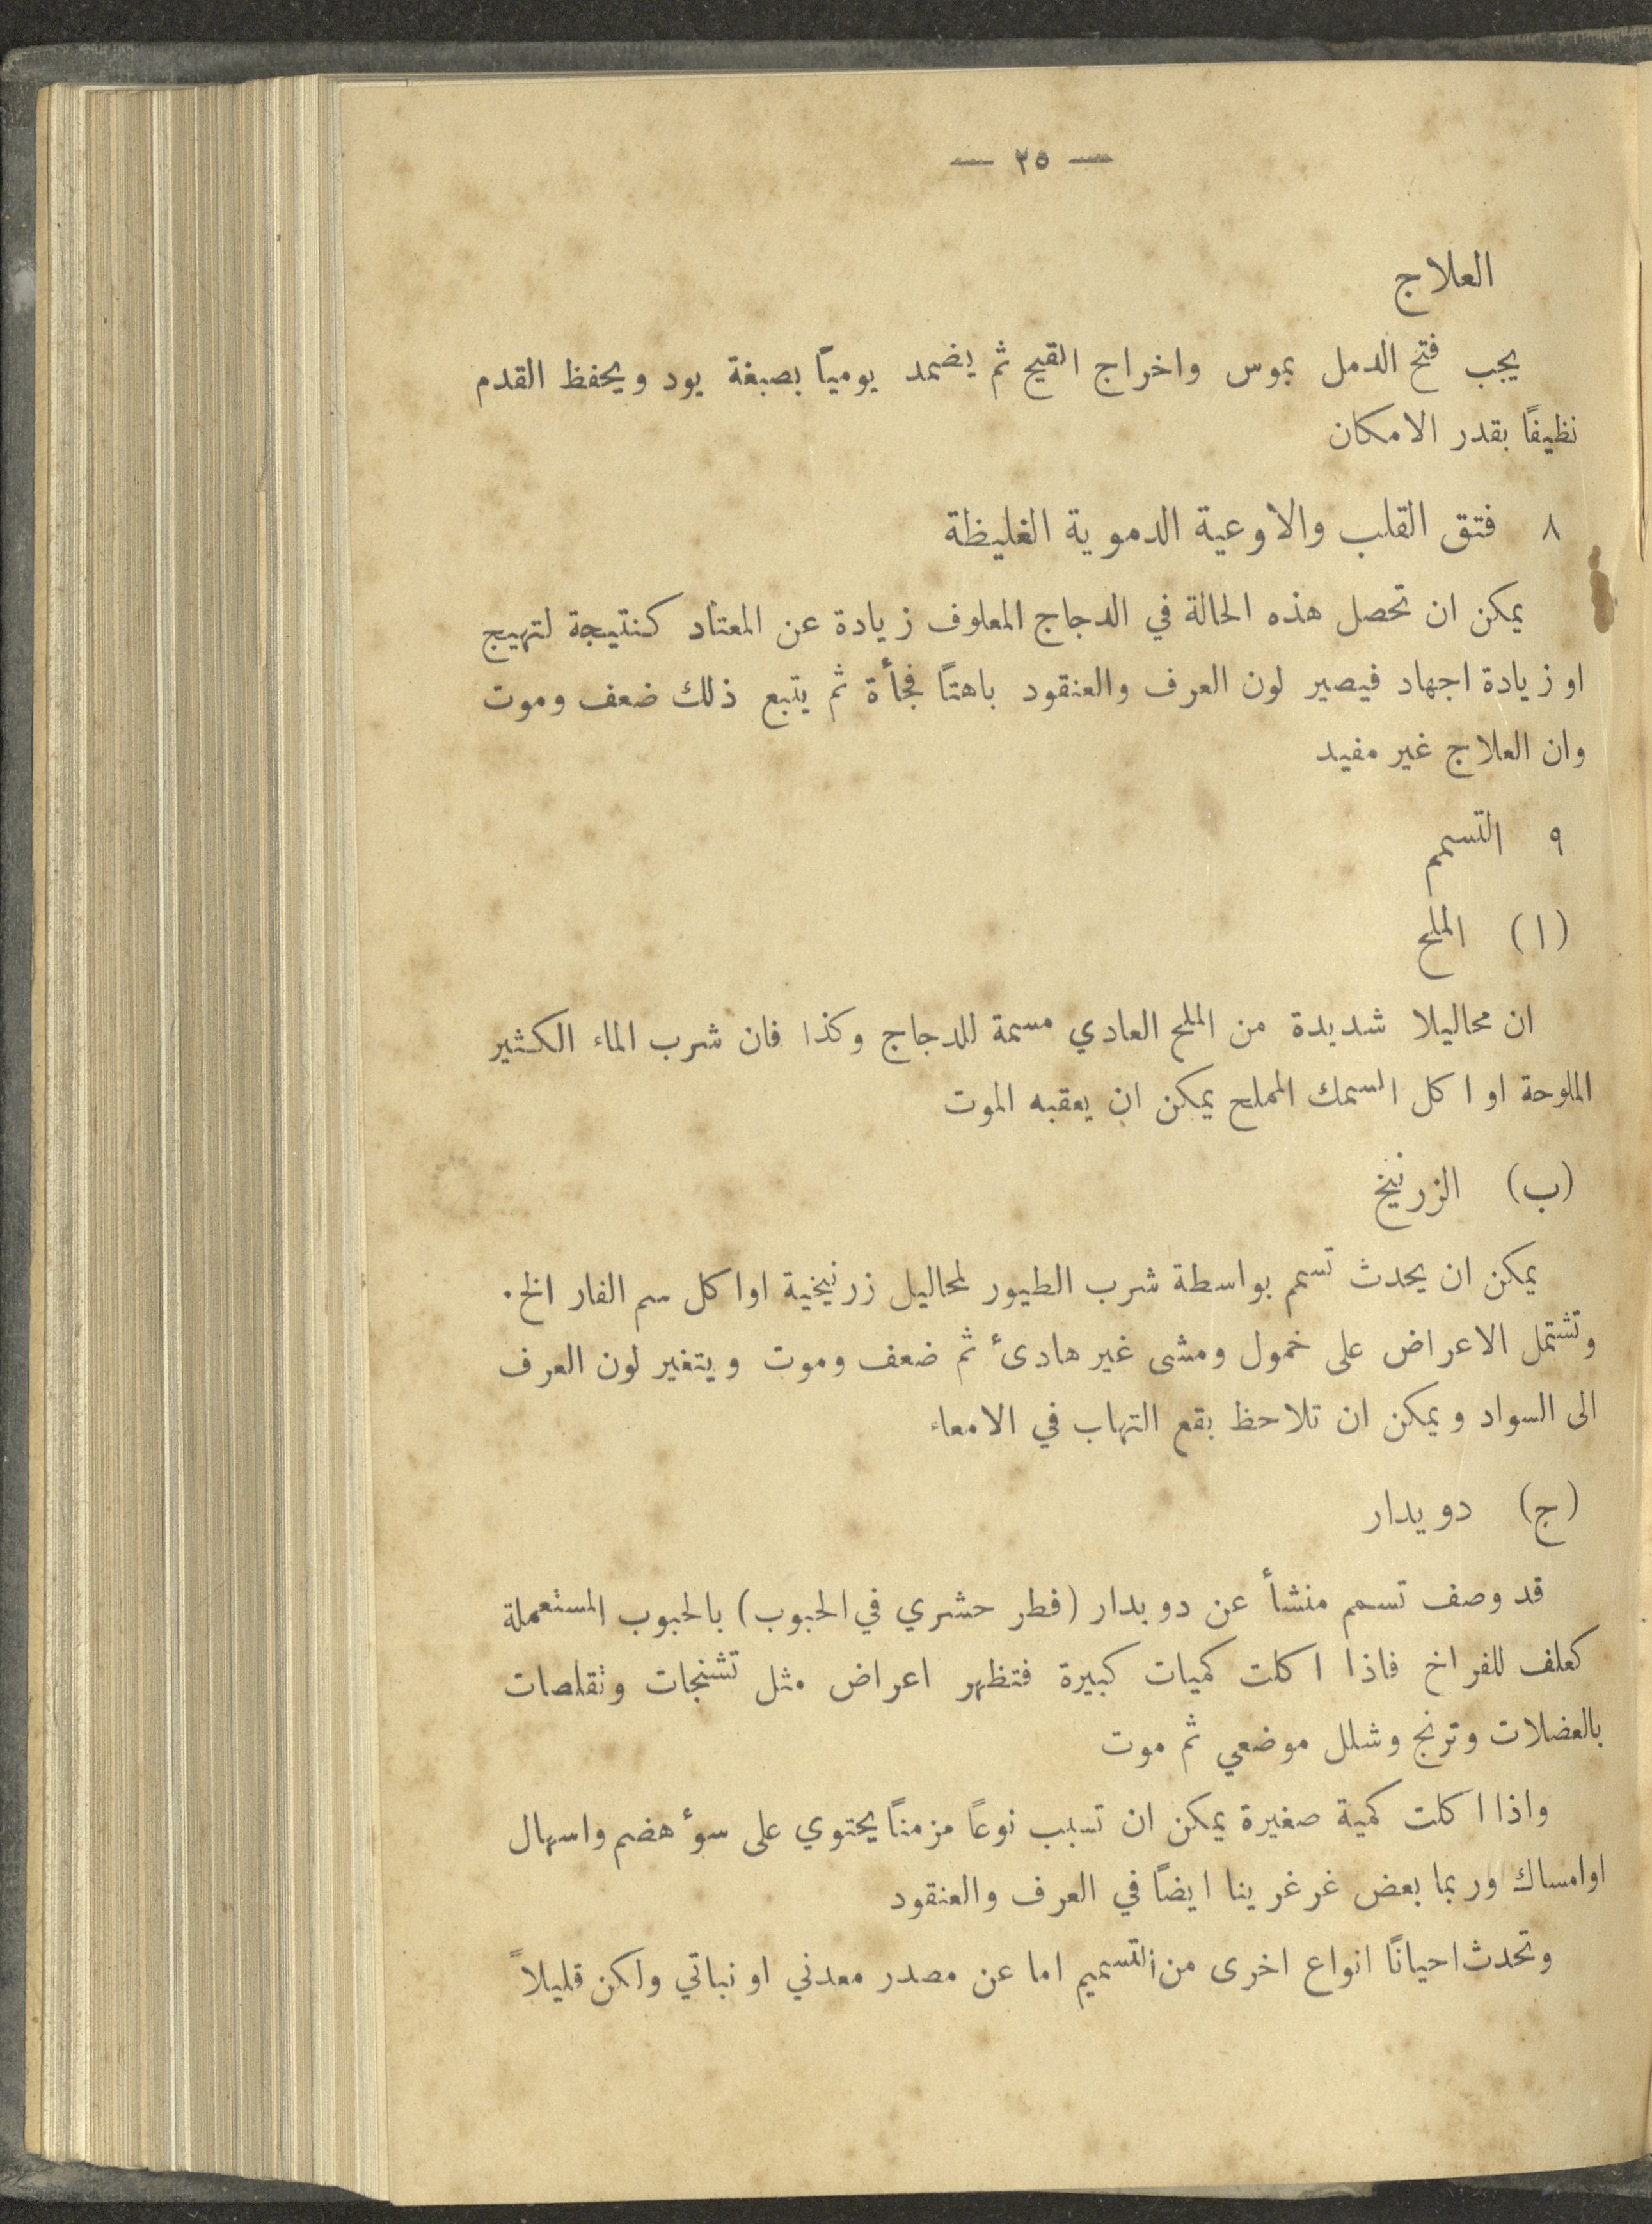 — ٢٥ —
العلاج
يجب فتح الدمل بموس واخراج القيح ثم يضمد يومياً بصبغة يود ويحفظ القدم
نظيفاً بقدر الامكان
٨ فتق القلب والاوعية الدموية الغليظة
يمكن ان تحصل هذه الحالة في الدجاج المعلوف زيادة عن المعتاد كنتيجة لتهيج
او زيادة اجهاد فيصير لون العرف والعنقود باهتاً فجأة ثم يتبع ذلك ضعف وموت
وان العلاج غير مفيد
٩ التسمم
(ا) الملح
ان محاليلا شديدة من الملح العادي مسمة للدجاج وكذا فان شرب الماء الكثير
الملوحة او اكل السمك المملح يمكن ان يعقبه الموت
(ب) الزرنيخ
يمكن ان يحدث تسمم بواسطة شرب الطيور لمحاليل زرنيخية او اكل سم الفار الخ.
وتشتمل الاعراض على خمول ومشى غير هادئ ثم ضعف وموت ويتغير لون العرف
الى السواد ويمكن ان تلاحظ بقع التهاب في الامعاء
(ج) دويدار
قد وصف تسمم منشأ عن دويدار (فطر حشري في الحبوب) بالحبوب المستعملة
كعلف للفراخ فاذا اكلت كميات كبيرة فتظهر اعراض مثل تشنجات وتقلصات
بالعضلات وترنج وشلل موضعي ثم موت
واذا اكلت كمية صغيرة يمكن ان تسبب نوعاً مزمناً يحتوي على سوء هضم واسهال
او امساك وربما بعض غرغرينا ايضاً في العرف والعنقود
وتحدث احياناً انواع اخرى من التسميم اما عن مصدر معدني او نباتي ولكن قليلاً